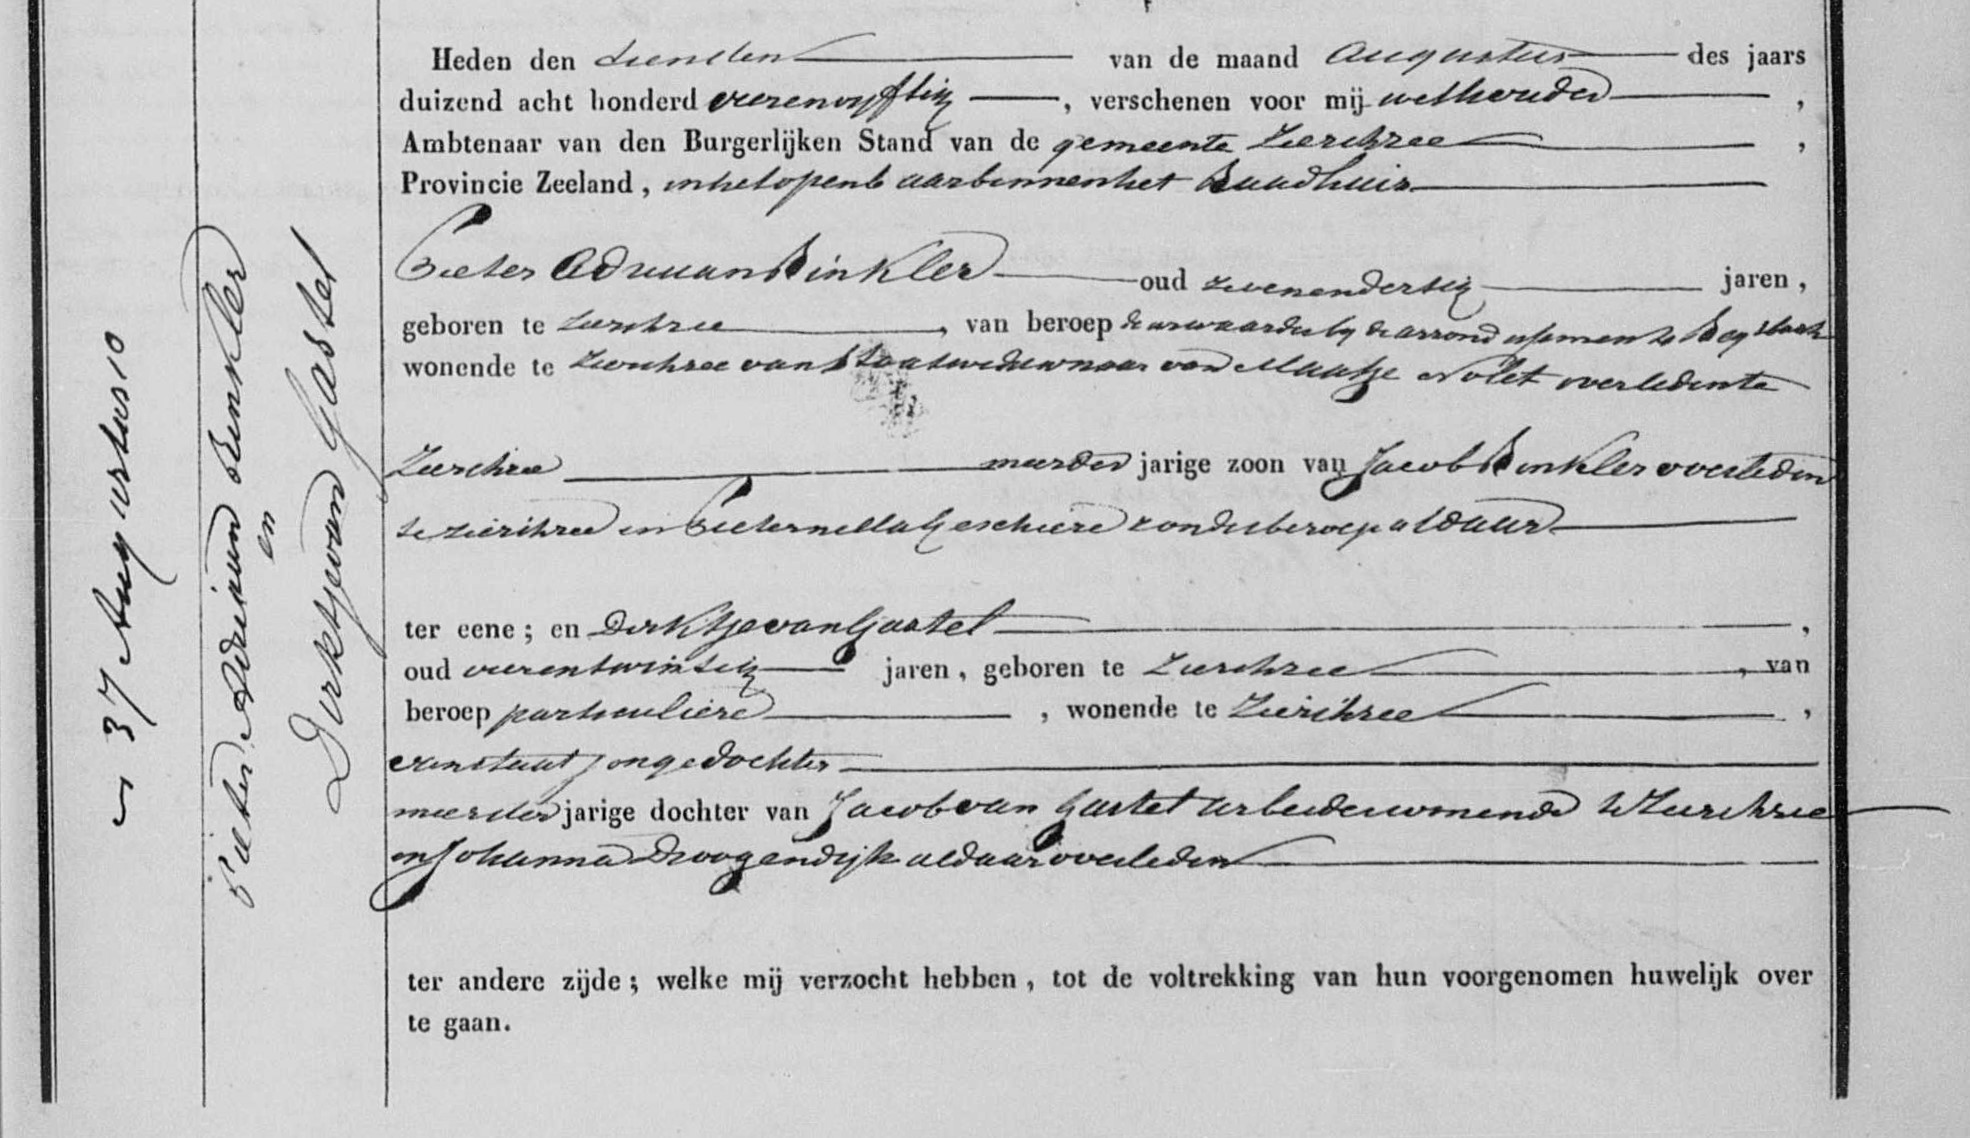 n 37 Augustus 10
Pieter Adriaan Binkler
en
Dirktje van Gastel
Heden den tienden van de maand Augustus des jaars
duizend acht honderd vierenvyftig, verschenen voor mij wethouder,
Ambtenaar van den Burgerlijken Stand van de gemeente Zierikzee,
Provincie Zeeland, in het openbaar binnen het Raadhuis
Pieter Adriaan Binkler oud zevenendertig jaren,
geboren te Zierikzee, van beroep deurwaarder by de arrondissements Regtbank
wonende te Zierikzee van Staat weduwnaar van Maatje Nolet overleden te
Zierikzee meerder jarige zoon van Jacob Binkler overleden
te Zierikzee en Pieternella Geschiere zonder beroep aldaar
ter eene; en Dirktje van Gastel,
oud vierentwintig jaren, geboren te Zierikzee, van
beroep particuliere, wonende te Zierikzee,
van staat jonge dochter
meerder jarige dochter van Jacob van Gastel arbeider wonende te Zierikzee
en Johanna Droogendijk aldaar overleden
ter andere zijde; welke mij verzocht hebben, tot de voltrekking van hun voorgenomen huwelijk over
te gaan.